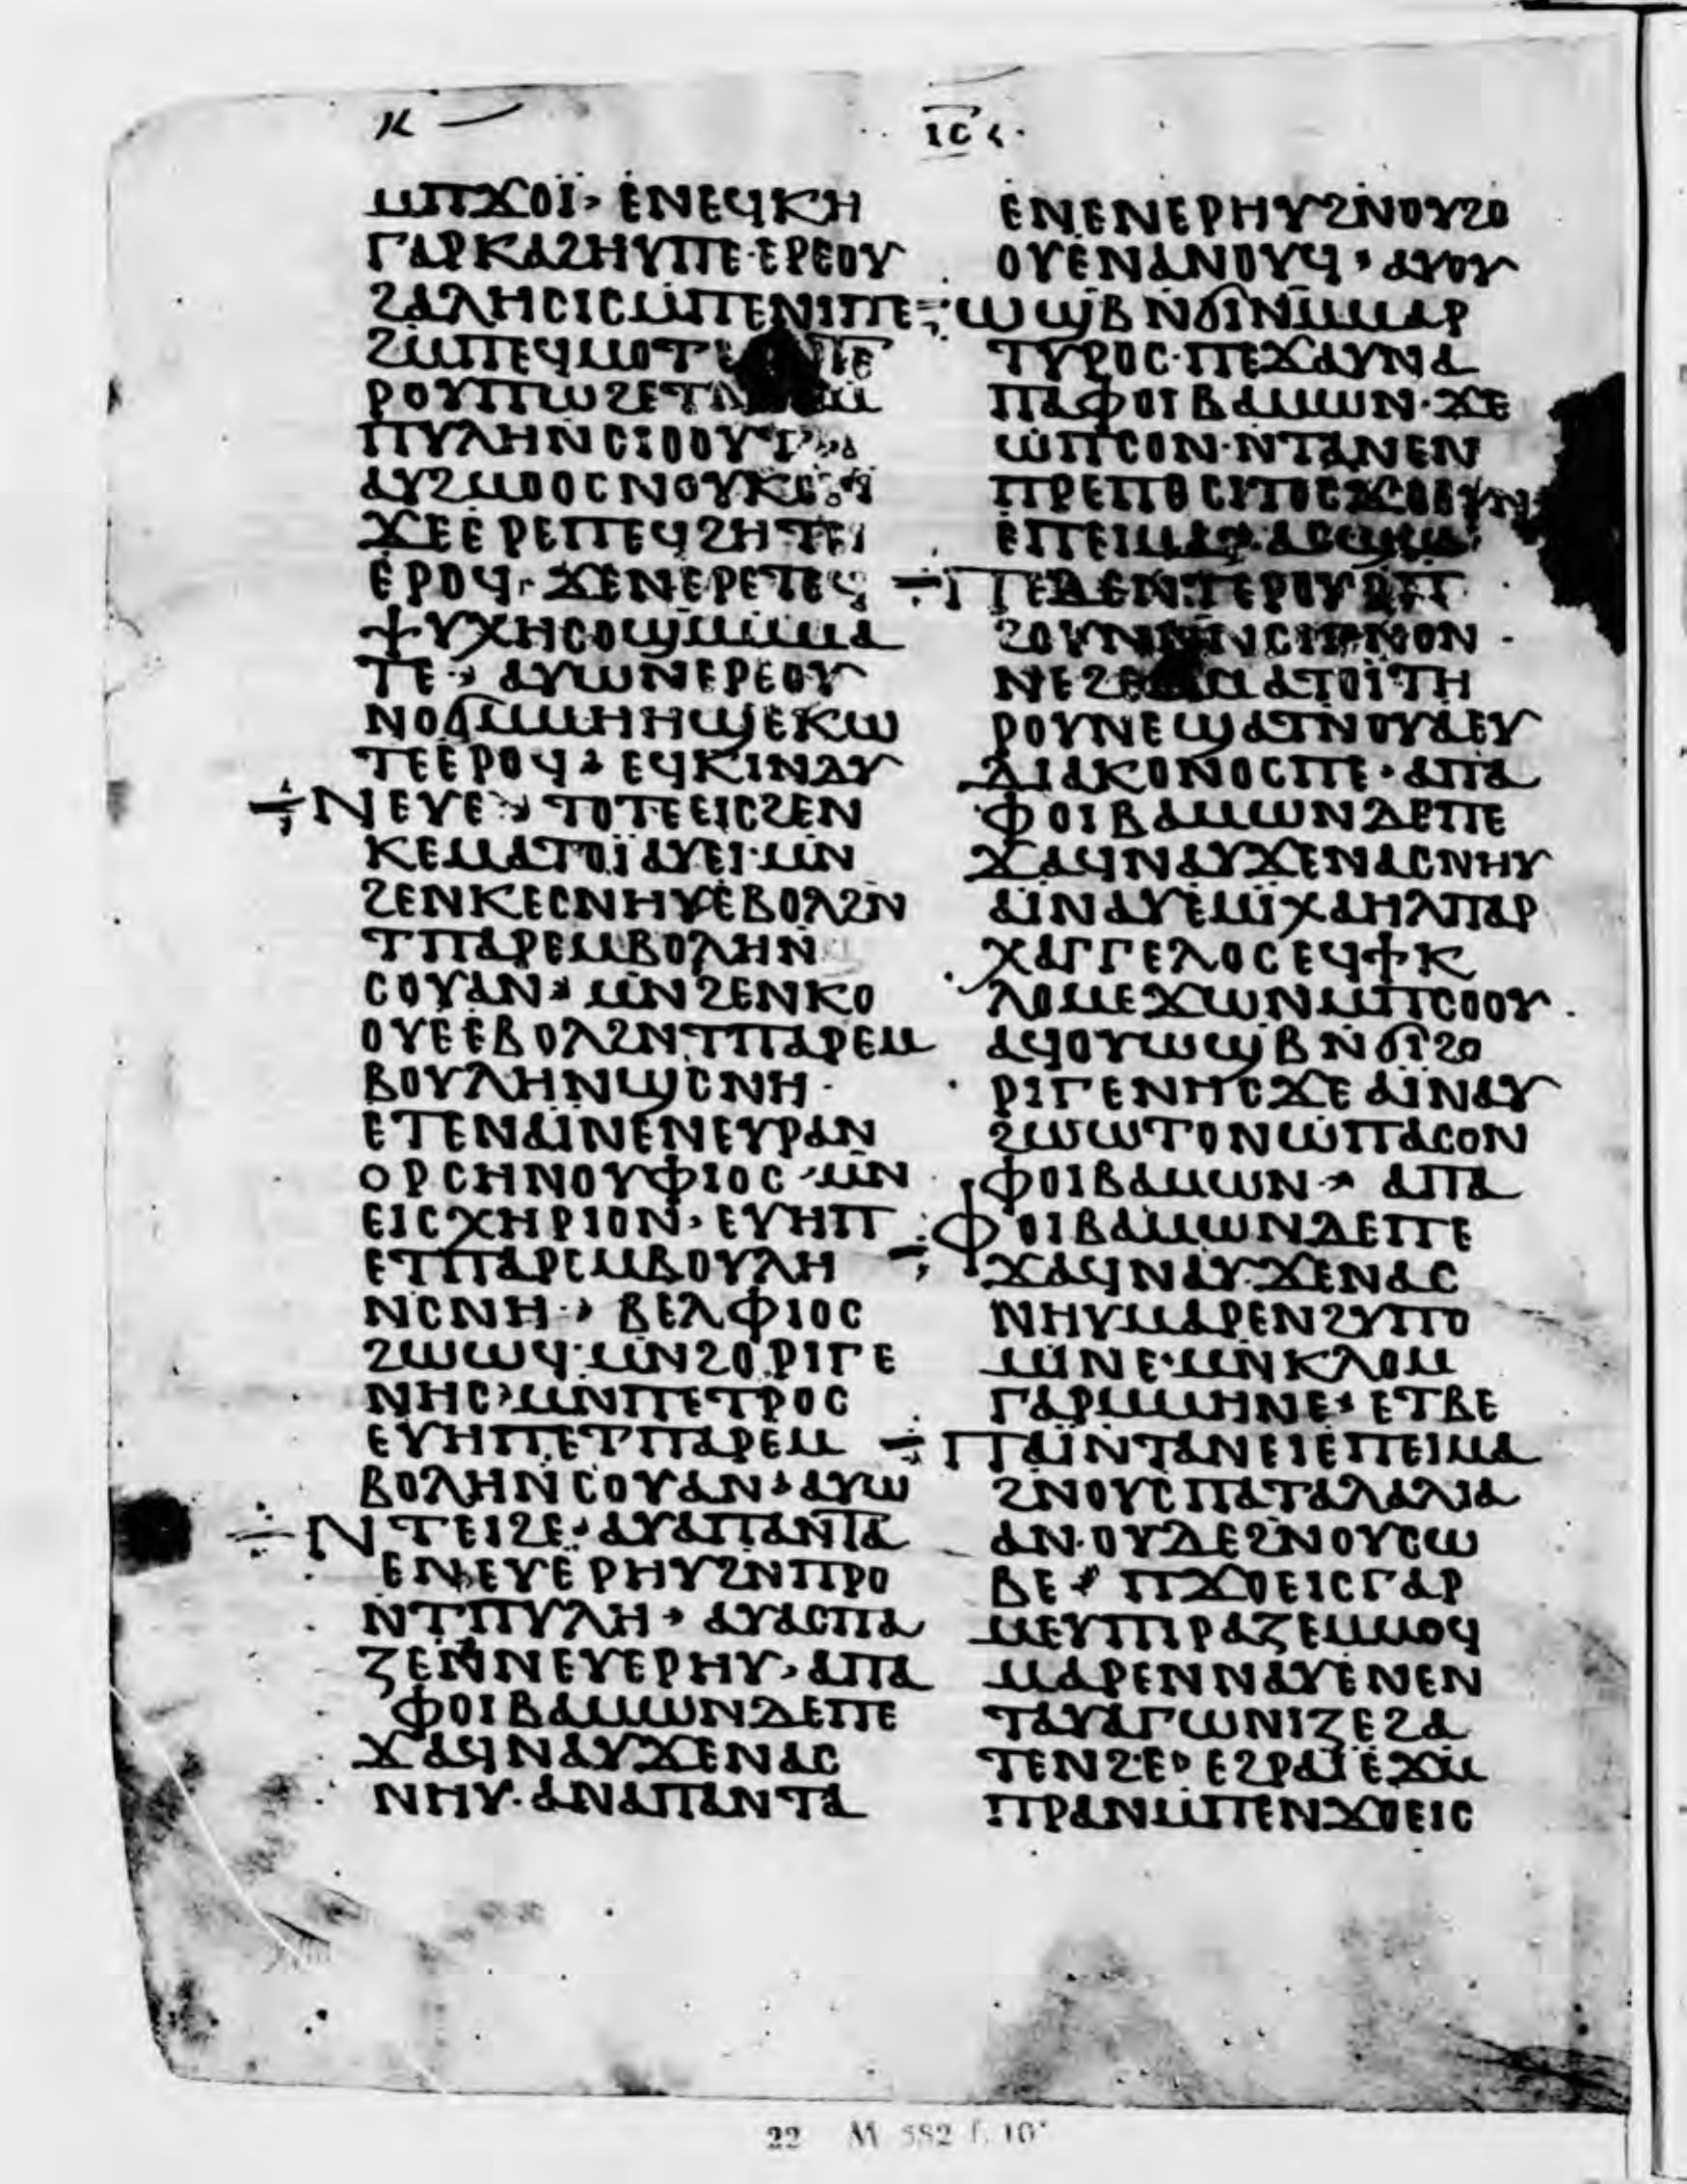 ⲕ
ⲓ̅ⲥ̅
ⲙⲡϫⲟⲓ̈· ⲉⲛⲉϥⲕⲏ
ⲅⲁⲣⲕⲁϩⲏⲩⲡⲉ·ⲉⲣⲉⲟⲩ
ϩⲁⲗⲏⲥⲓⲥⲙ̅ⲡⲉⲛⲓⲡⲉ
ϩⲙⲡⲉϥⲙⲟⲧⲉ
ⲣⲟⲩⲡⲱϩⲉⲧⲛ
ⲡⲩⲗⲏⲛⲥⲓⲟⲟⲩⲛ
ⲁⲩϩⲙⲟⲟⲥⲛⲟⲩⲕⲟⲩⲓ
ϫⲉⲉⲣⲉⲡⲉϥϩⲏⲧⲉⲓ
ⲉⲣⲟϥ· ϫⲉⲛⲉⲣⲉⲧⲉϥ
ⲯⲩⲭⲏⲥⲟϣⲙⲙⲙⲁ
ⲧⲉ· ⲁⲩⲱⲛⲉⲣⲉⲟⲩ
ⲛⲟϭⲙⲙⲏⲏϣⲉⲕⲱ
ⲧⲉⲉⲣⲟϥ· ⲉϥⲕⲓⲛⲁⲩ
ⲛⲉⲩⲉ· ⲧⲟⲧⲉⲉⲓⲥϩⲉⲛ
ⲕⲉⲙⲁⲧⲟⲓ̈ⲁⲩⲉⲓ·ⲙⲛ
ϩⲉⲛⲕⲉⲥⲛⲏⲩⲉⲃⲟⲗϩⲛ
ⲧⲡⲁⲣⲉⲙⲃⲟⲗⲏⲛ
ⲥⲟⲩⲁⲛ· ⲙⲛϩⲉⲛⲕⲟ
ⲟⲩⲉⲉⲃⲟⲗϩⲛⲧⲡⲁⲣⲉⲙ
ⲃⲟⲩⲗⲏⲛϣⲥⲛⲏ·
ⲉⲧⲉⲛⲁⲓⲛⲉⲛⲉⲩⲣⲁⲛ
ⲟⲣⲥⲏⲛⲟⲩⲫⲓⲟⲥ·ⲙⲛ
ⲉⲓⲥⲭⲏⲣⲓⲟⲛ· ⲉⲩⲏⲡ
ⲉⲧⲡⲁⲣⲉⲙⲃⲟⲩⲗⲏ
ⲛⲥⲛⲏ· ⲃⲉⲗⲫⲓⲟⲥ
ϩⲱⲱϥ·ⲙⲛϩⲟⲣⲓⲅⲉ
ⲛⲏⲥ·ⲙⲛⲡⲉⲧⲣⲟⲥ
ⲉⲩⲏⲡⲉⲧⲡⲁⲣⲉⲙ
ⲃⲟⲗⲏⲛⲥⲟⲩⲁⲛ· ⲁⲩⲱ
ⲛⲧⲉⲓϩⲉ·ⲁⲩⲁⲡⲁⲛⲧⲁ
ⲉⲛⲉⲩⲉⲣⲏⲩϩⲛⲡⲣⲟ
ⲛⲧⲡⲩⲗⲏ· ⲁⲩⲁⲥⲡⲁ
ⲍⲉⲛⲛⲉⲩⲉⲣⲏⲩ· ⲁⲡⲁ
ⲫⲟⲓⲃⲁⲙⲱⲛⲇⲉⲡⲉ
ϫⲁϥⲛⲁⲩϫⲉⲛⲁⲥ
ⲛⲏⲩ·ⲁⲛⲁⲡⲁⲛⲧⲁ
ⲉⲛⲉⲛⲉⲣⲏⲩϩⲛⲟⲩϩⲟ
ⲟⲩⲉⲛⲁⲛⲟⲩϥ· ⲁⲩⲟⲩ
ⲱϣⲃⲛϭⲓⲛⲙⲙⲁⲣ
ⲧⲩⲣⲟⲥ·ⲡⲉϫⲁⲩⲛⲁ
ⲡⲁⲫⲟⲓⲃⲁⲙⲱⲛ·ϫⲉ
ⲱⲡⲥⲟⲛ·ⲛⲧⲁⲛⲉⲛ
ⲡⲣⲉⲡⲟⲥⲓⲧⲟⲥϫⲟⲟⲩⲛ
ⲉⲡⲉⲓⲙⲁ·ⲁⲥϣⲱ
ⲡⲉⲇⲉⲛⲧⲉⲣⲟⲩⲱⲡ
ϩⲟⲩⲛ
ⲛⲉϩⲉⲛⲙⲁⲧⲟⲓ̈ⲧⲏ
ⲣⲟⲩⲛⲉϣⲁⲧⲛⲟⲩⲁⲉⲩ
ⲇⲓⲁⲕⲟⲛⲟⲥⲡⲉ·ⲁⲡⲁ
ⲫⲟⲓⲃⲁⲙⲱⲛⲇⲉⲡⲉ
ϫⲁϥⲛⲁⲩϫⲉⲛⲁⲥⲛⲏⲩ
ⲁⲓⲛⲁⲩⲉⲙⲓⲭⲁⲏⲗⲡⲁⲣ
ⲭⲁⲅⲅⲉⲗⲟⲥⲉϥϯⲕ
ⲗⲟⲙⲉϫⲱⲛⲙⲡⲥⲟⲟⲩ·
ⲁϥⲟⲩⲱϣⲃⲛϭⲓϩⲟ
ⲣⲓⲅⲉⲛⲏⲥϫⲉⲁⲓⲛⲁⲩ
ϩⲱⲱⲧⲟⲛⲱⲡⲁⲥⲟⲛ
ⲫⲟⲓⲃⲁⲙⲱⲛ· ⲁⲡⲁ
ⲫⲟⲓⲃⲁⲙⲱⲛⲇⲉⲡⲉ
ϫⲁϥⲛⲁⲩ·ϫⲉⲛⲁⲥ
ⲛⲏⲩⲙⲁⲣⲉⲛϩⲩⲡⲟ
ⲙⲓⲛⲉ·ⲙⲛⲕⲗⲟⲙ
ⲅⲁⲣⲙⲙⲏⲛⲉ· ⲉⲧⲃⲉ
ⲡⲁⲓ̈ⲛⲧⲁⲛⲉⲓⲉⲡⲉⲓⲙⲁ
ϩⲛⲟⲩⲥⲡⲁⲧⲁⲗⲁⲗⲓⲁ
ⲁⲛ·ⲟⲩⲇⲉϩⲛⲟⲩⲥⲱ
ⲃⲉ· ⲡϫⲟⲉⲓⲥⲅⲁⲣ
ⲙⲉⲩⲡⲓⲣⲁⲍⲉⲙⲙⲟϥ
ⲙⲁⲣⲉⲛⲛⲁⲩⲉⲛⲉⲛ
ⲧⲁⲩⲁⲅⲱⲛⲓⲍⲉϩⲁ
ⲧⲉⲛϩⲉ· ⲉϩⲣⲁⲓ̈ⲉϫⲙ
ⲡⲣⲁⲛⲙⲡⲉⲛϫⲟⲉⲓⲥ
22 M 582 f. 10ᵛ